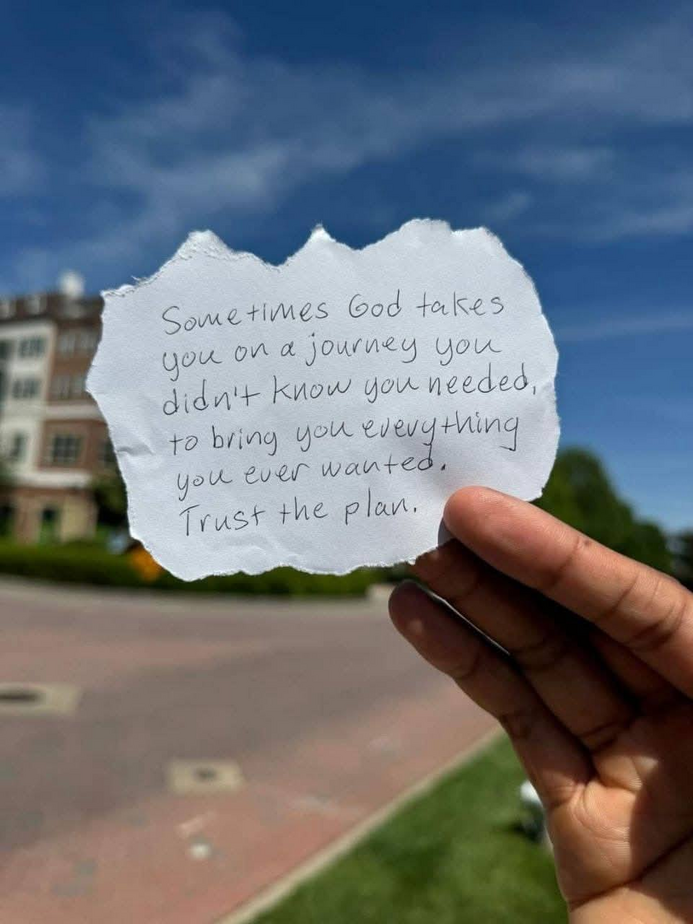 Sometimes God takes
you on a journey you
didn't know you needed,
to bring you everything
you ever wanted.
Trust the plan.